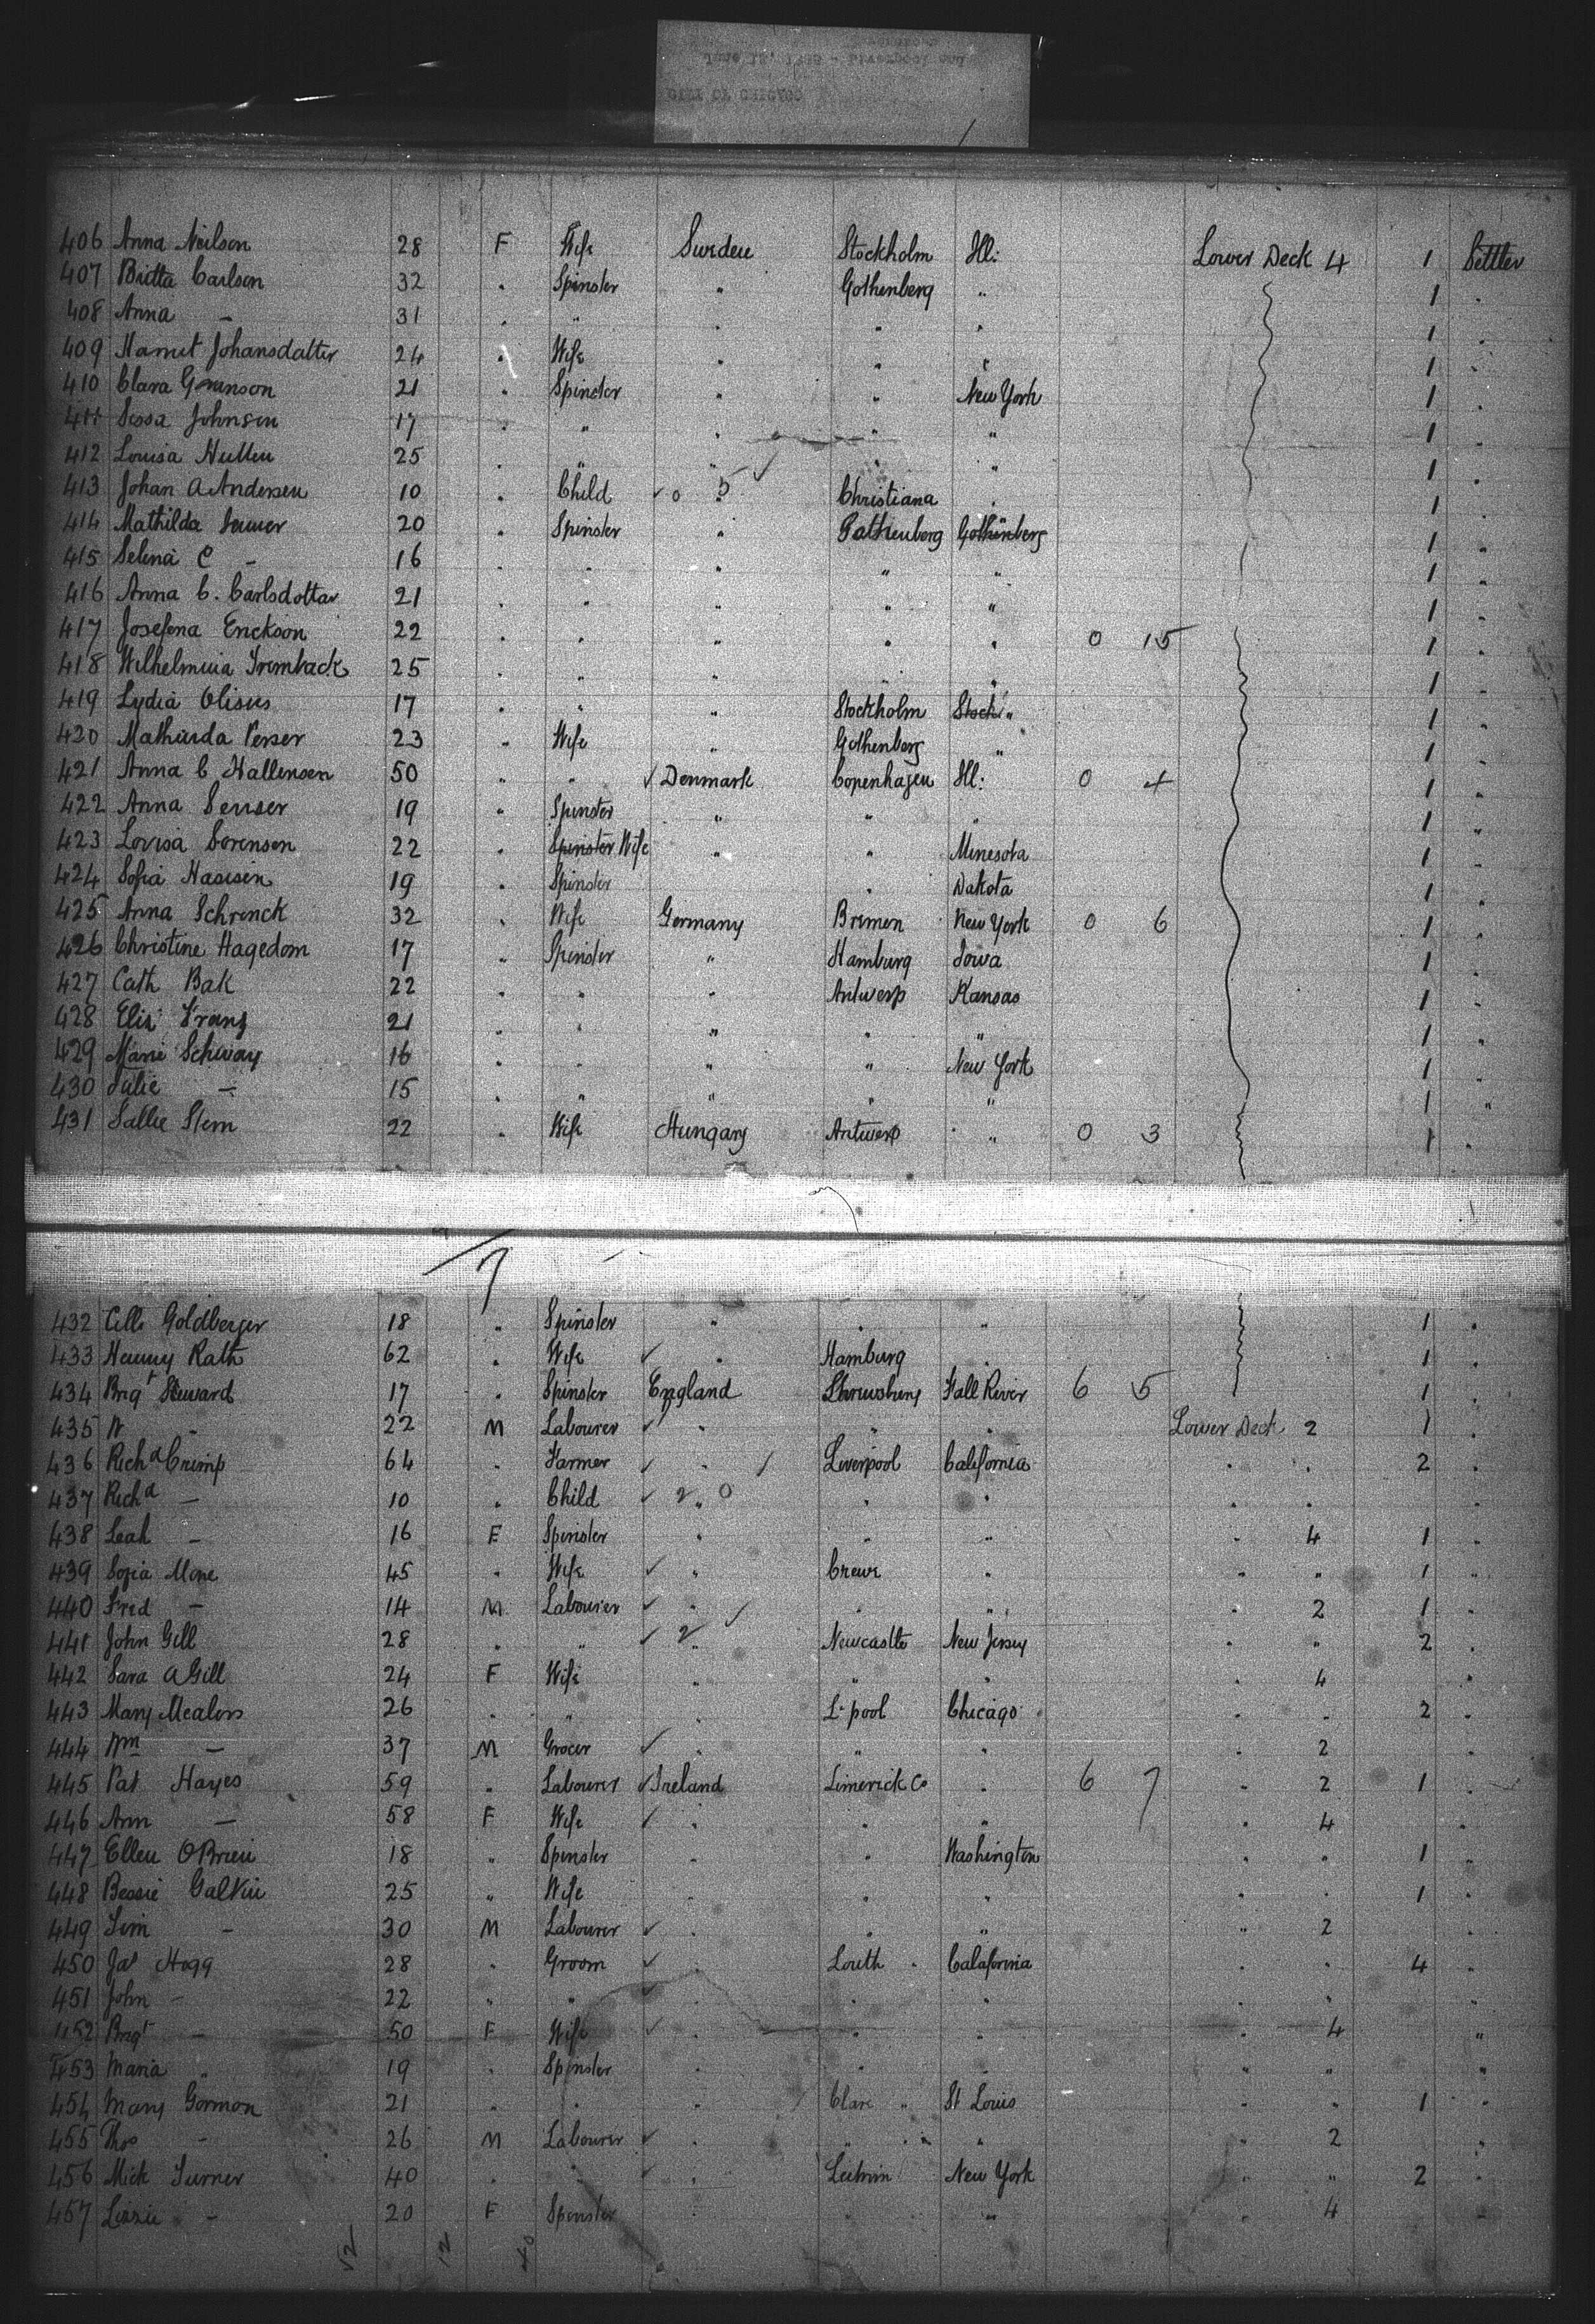 CITY OF CHICAGO
June 18, 1888 - Liverpool and
406 Anna Neilson 28 F Wife Sweden Stockholm Ill: Lower Deck 4 1 Settler
407 Britta Carlson 32 . Spinster " Gothenberg " 1 .
408 Anna - 31 . " . " . 1 .
409 Johansdatter 24 . Wife . " " 1 .
410 Clara 21 . Spinster . " New York 1 .
411 Johnsen 17 . " . " " 1 .
412 Louisa 25 . " " " " 1 .
413 Johan A Andersen 10 . Child ✓ 0 5 Christiana . 1 .
414 Mathilda 20 . Spinster . Gothenberg 1 .
415 Selena C - 16 . . . " " 1 .
416 Anna C. Carlsdotter 21 . . . " " 1 .
417 Josefena Erickson 22 . . . . . 0 15 1 .
418 Wilhelmina 25 . " . . " 1 .
419 Lydia 17 . " " Stockholm Stock " 1 .
420 23 " Wife " Gothenberg " 1 .
421 Anna C Hallensen 50 " " ✓ Denmark Copenhagen Ill: 0 4 1 .
422 Anna 19 " Spinster " " " 1 "
423 Lovisa Sorensen 22 . Spinster Wife " " Minesota 1 .
424 Sofia 19 . Spinster . Dakota 1 .
425 Anna Schrenck 32 . Wife Germany Bremen New York 0 6 1 .
426 Christine Hagedorn 17 " Spinster " Hamburg Iowa 1 .
427 Cath Bak 22 . . . Antwerp Kansas 1 .
428 Franz 21 . . " . " 1 .
429 Marie Schway 16 . . " " New York 1 .
430 Julie - 15 . " " " " 1 "
431 Sallie Stern 22 . Wife Hungary Antwerp " 0 3 1 .
7
432 Goldberger 18 " Spinster " . " 1 .
433 Rath 62 . Wife ✓ . Hamburg . 1 .
434 Brigt Steward 17 . Spinster England Fall River 6 5 1 .
435 " 22 M Labourer ✓ . " " Lower Deck 2 1 .
436 Richd Crimp 64 . Farmer ✓ . / Liverpool California . . 2 .
437 Richd - 10 . Child ✓ 2 " 0 . . . . .
438 Leah - 16 F Spinster . " " . 4 1 .
439 Sofia 45 . Wife ✓ . Crewe " . " 1 "
440 Fred - 14 M Labourer ✓ . . " . 2 1 .
441 John Gill 28 " " ✓ 2 " Newcastle New Jersey . " 2 .
442 Sara A Gill 24 F Wife . " " . 4 .
443 Mary 26 . " . L'pool Chicago . . 2 .
444 Wm - 37 M Grocer ✓ . " . . 2 .
445 Pat Hayes 59 " Labourer ✓ Ireland Limerick Co . 6 7 " 2 1 .
446 Ann - 58 F Wife ✓ . . " . 4 .
447 Ellen O'Brien 18 " Spinster . " Washington . " 1 .
448 Bessie Galvin 25 " Wife . . " . . 1 .
449 - 30 M Labourer ✓ . . " " 2 .
450 Jas Hogg 28 . Groom ✓ . Louth . Calafornia . " 4 .
451 John - 22 " " ✓ . . " . " "
452 Brigt - 50 F Wife ✓ . " " . 4 "
453 Maria " 19 . Spinster . " - " " "
454 Mary Gorman 21 " . " Clare " St Louis " " 1 .
455 Thos - 26 M Labourer ✓ . " " . 2 .
456 Mick 40 . . ✓ . Leitrim New York . " 2 .
457 Lizzie - 20 F Spinster . " " . 4 -
12